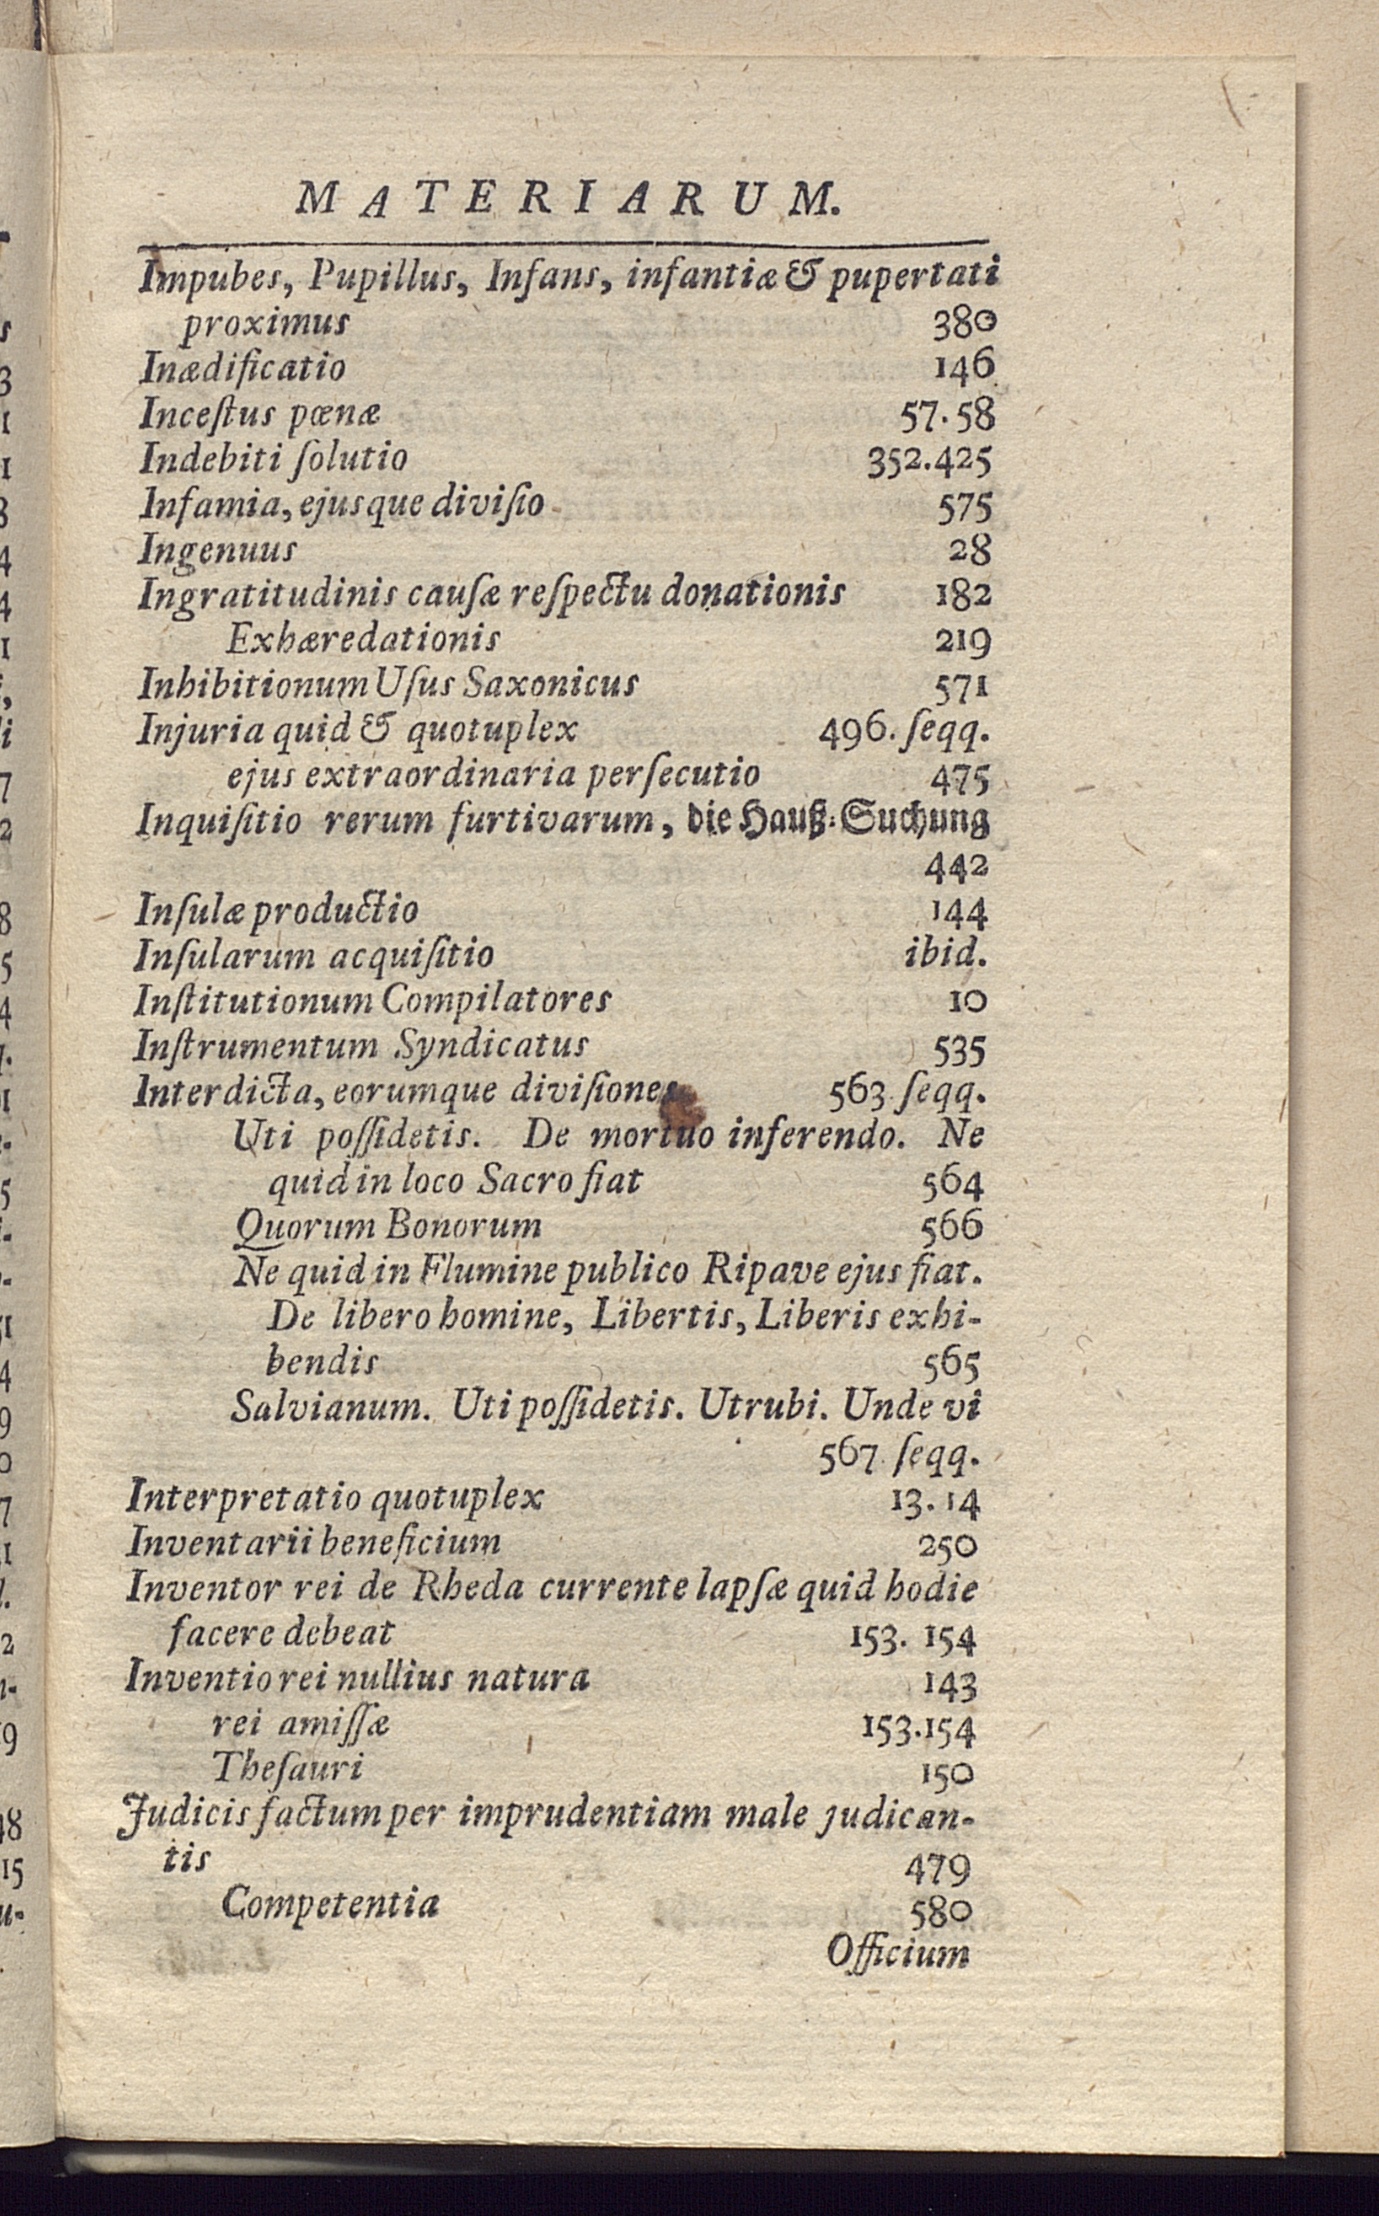 MATERIARUM.
Impubes, Pupillus, Infans, infantiæ & pupertati
proximus 380
Inædificatio 146
Inceſtus pœnæ 57.58
Indebiti ſolutio 352.425
Infamia, ejusque diviſio 575
Ingenuus 28
Ingratitudinis cauſæ reſpectu donationis 182
Exhæredationis 219
Inhibitionum Uſus Saxonicus 571
Injuria quid & quotuplex 496. ſeqq.
ejus extraordinaria perſecutio 475
Inquiſitio rerum furtivarum, die Hauß-Suchung
442
Inſulæ productio 144
Inſularum acquiſitio ibid.
Inſtitutionum Compilatores 10
Inſtrumentum Syndicatus 535
Interdicta, eorumque diviſiones 563. ſeqq.
Uti poſſidetis. De mortuo inferendo. Ne
quid in loco Sacro fiat 564
Quorum Bonorum 566
Ne quid in Flumine publico Ripave ejus fiat.
De libero homine, Libertis, Liberis exhi-
bendis 565
Salvianum. Uti poſſidetis. Utrubi. Unde vi
567. ſeqq.
Interpretatio quotuplex 13.14
Inventarii beneficium 250
Inventor rei de Rheda currente lapſæ quid hodie
facere debeat 153. 154
Inventio rei nullius natura 143
rei amiſſæ 153.154
Theſauri 150
Judicis factum per imprudentiam male judican-
tis 479
Competentia 580
Officium